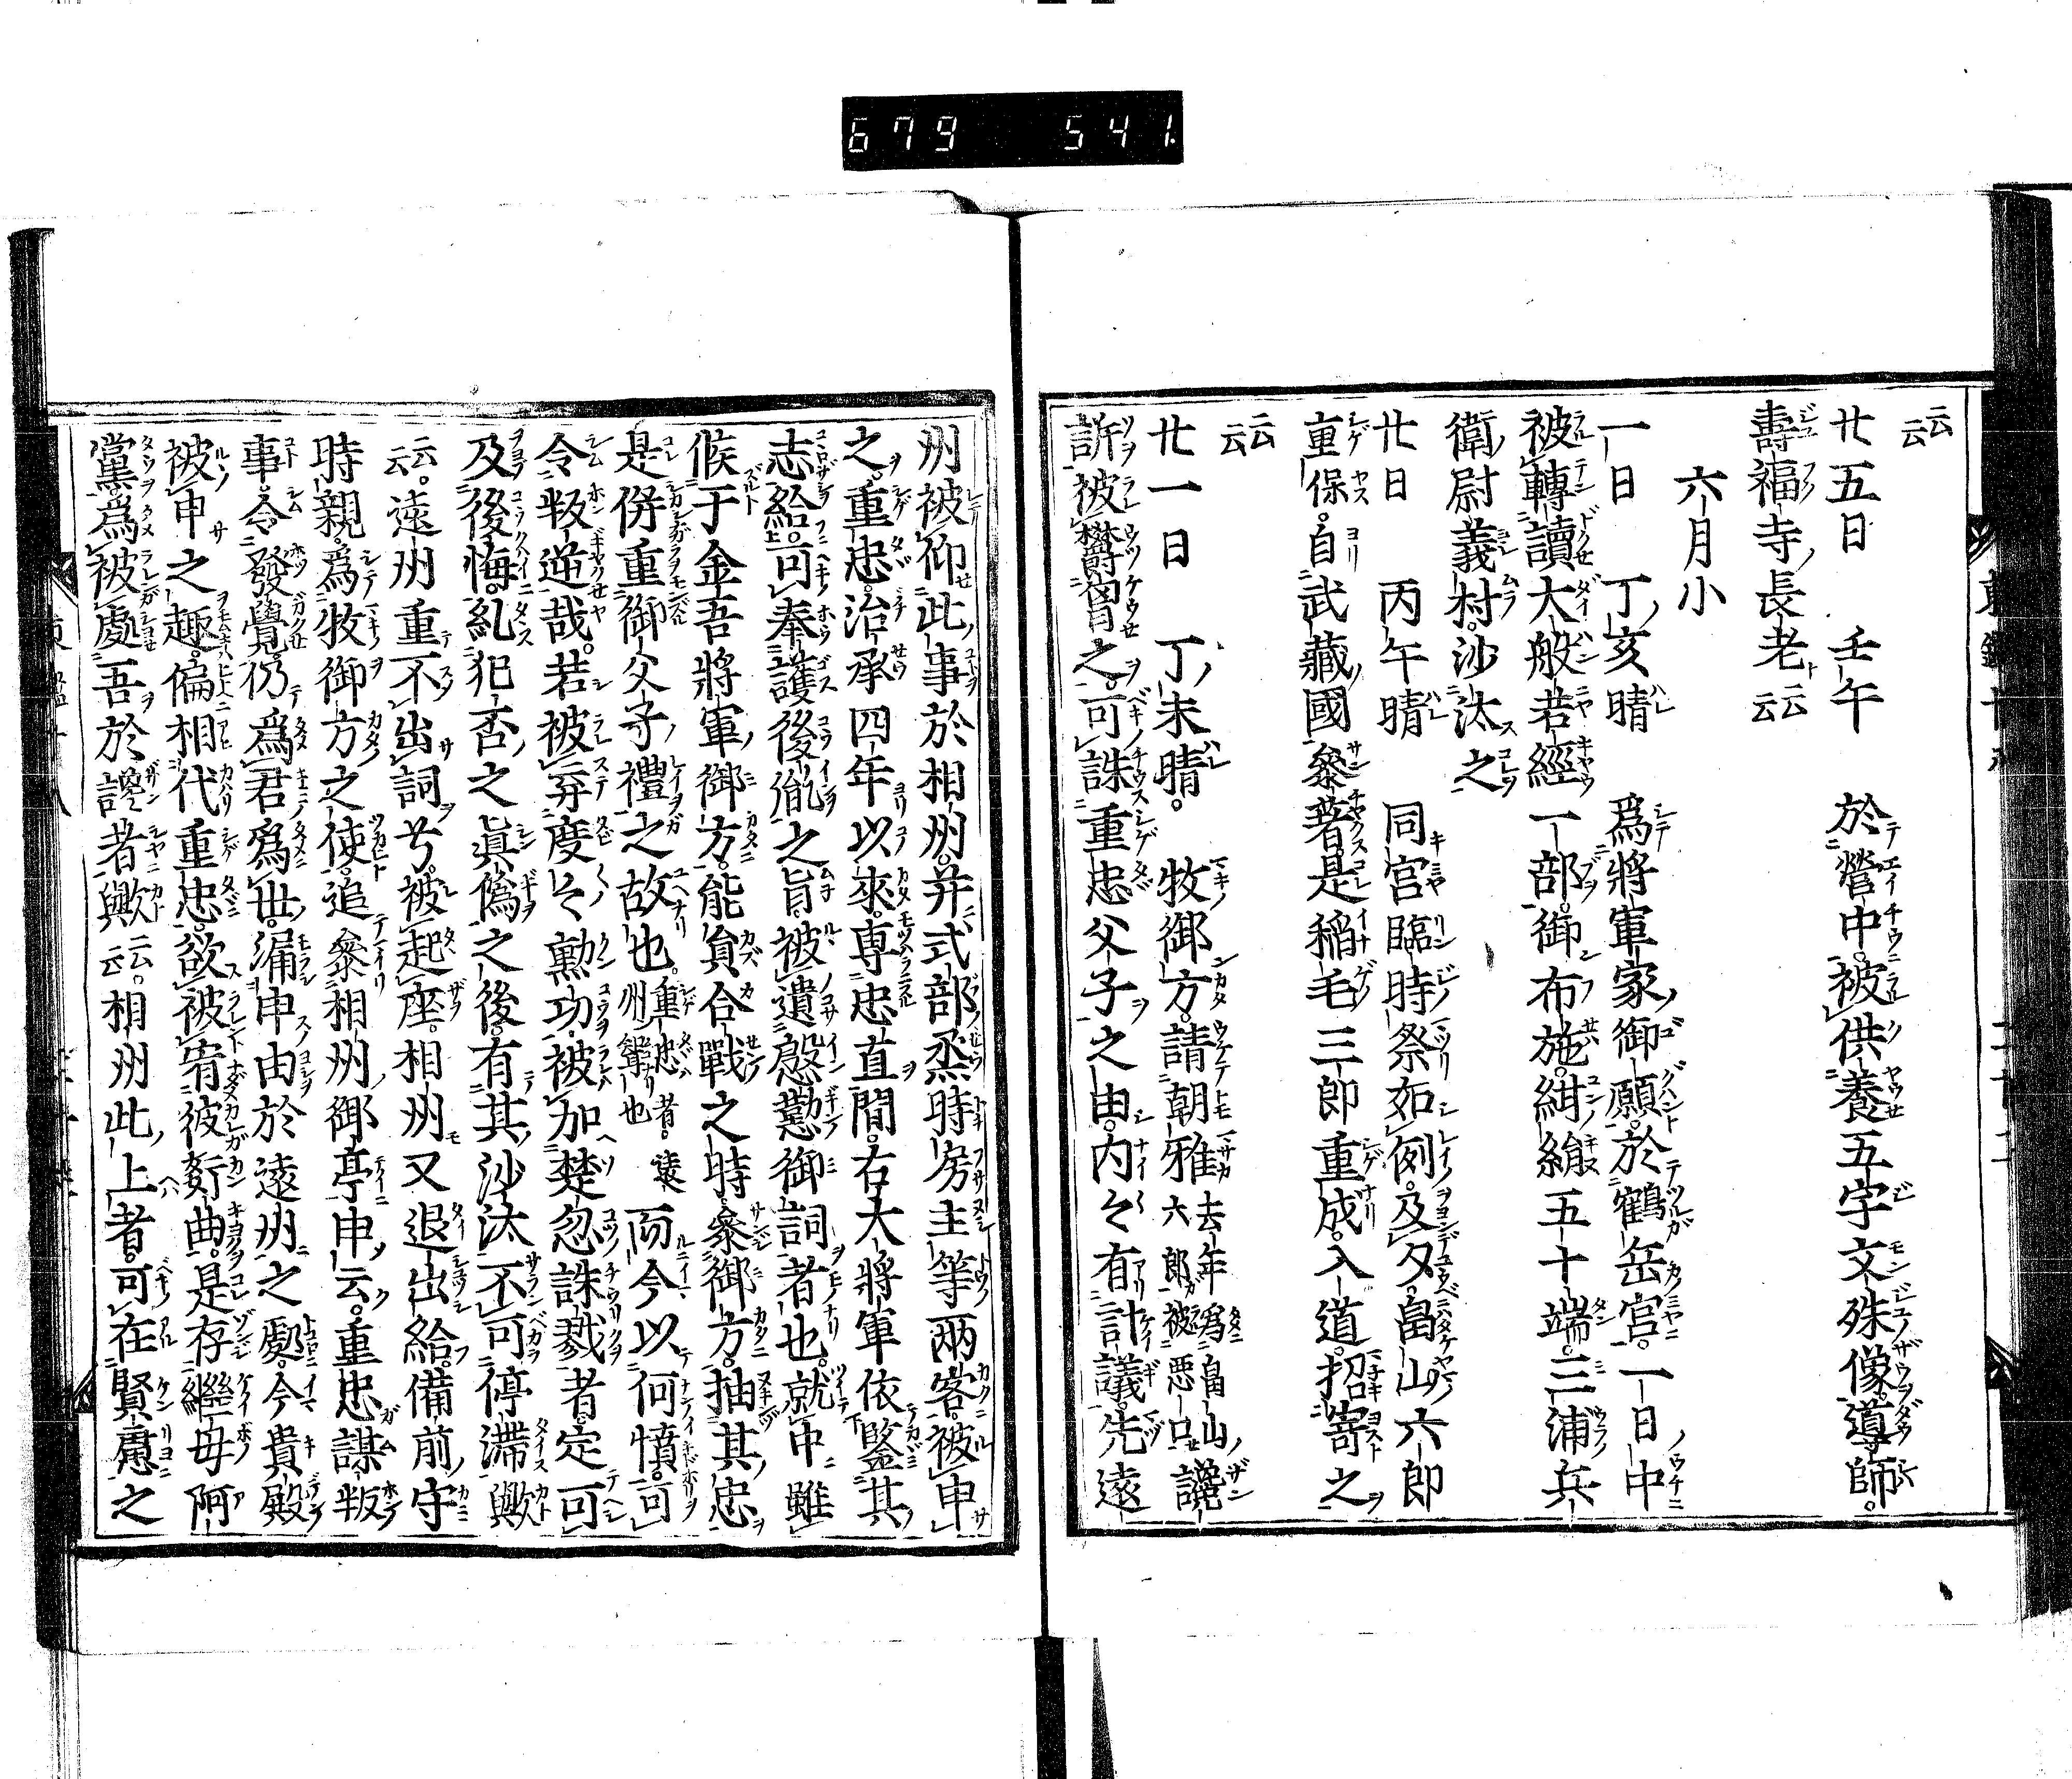 679 541
云云
廿五日 壬午 於營中被供養五字文殊像導師
壽福寺長老云云
六月小
一日 丁亥晴 爲將軍家御願於鶴岳宮一日中
被轉讀大般若經一部御布施紺絹五十端三浦兵
衛尉義村沙汰之
廿日 丙午晴 同宮臨時祭如例及夕畠山六郎
重保自武藏國參著是稲毛三郎重成入道招寄之
云云
廿一日 丁未晴 牧御方請朝雅去年爲畠山六郎被惡口讒
訴被欝陶之可誅重忠父子之由内々有計議先遠
州被仰此事於相州并式部烝時房主等兩客被申
之重忠治承四年以來專忠直間右大將軍依鑒其
志給可奉護後胤之旨被遺慇懃御詞者也就中雖
候于金吾將軍御方能員合戰之時參御方抽其忠
是併重御父子禮之故也重忠者遠州聟也而今以何憤可
令叛逆哉若被弃度々勲功被加楚忽誅戮者定可
及後悔糺犯否之眞僞之後有其沙汰不可停滯歟
云云遠州重不出詞兮被起座相州又退出給備前守
時親爲牧御方之使追參相州御亭申云重忠謀叛
事令發覺仍爲君爲世漏申由於遠州之處今貴殿
被申之趣偏相代重忠欲被宥彼姧曲是存繼母阿
黨爲被處吾於讒者歟云云相州此上者可在賢慮之